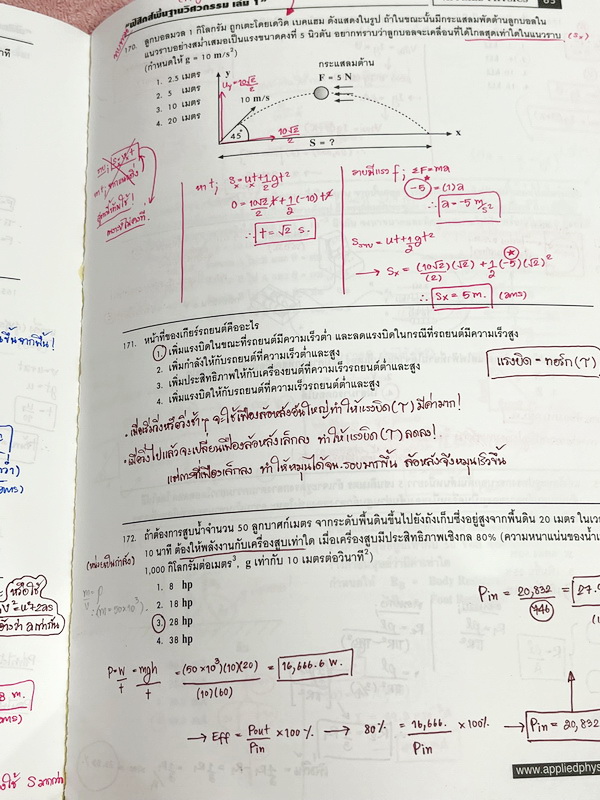 "ฟิสิกส์พื้นฐานวิศวกรรม เล่ม 1"
170. ลูกบอลมวล 1 กิโลกรัม ถูกเตะโดยเดวิด เบคแฮม ดังแสดงในรูป ถ้าในขณะนั้นมีกระแสลมพัดต้านลูกบอลใน
แนวราบอย่างสม่ำเสมอเป็นแรงขนาดคงที่ 5 นิวตัน อยากทราบว่าลูกบอลจะเคลื่อนที่ได้ไกลสุดเท่าใดในแนวราบ (Sx)
(กำหนดให้ g = 10 m/s²)
1. 2.5 เมตร
2. 5 เมตร
3. 10 เมตร
4. 20 เมตร
y
uy = 10√2/2
10 m/s
45°
10√2/2
กระแสลมต้าน
F = 5 N
x
S = ?
หา t; S = ut + 1/2 gt²
0 = 10√2/2 t + 1/2 (-10) t²
∴ t = √2 s.
ΣF = ma
-5 = (1) a
∴ a = -5 m/s²
= ut + 1/2 gt²
→ Sx = (10√2)/(2) (√2) + 1/2 (-5)(√2)²
∴ Sx = 5 m. (ans)
171. หน้าที่ของเกียร์รถยนต์คืออะไร
1. เพิ่มแรงบิดในขณะที่รถยนต์มีความเร็วต่ำ และลดแรงบิดในกรณีที่รถยนต์มีความเร็วสูง
2. เพิ่มกำลังให้กับรถยนต์ที่ความเร็วต่ำและสูง
3. เพิ่มประสิทธิภาพให้กับเครื่องยนต์ที่ความเร็วรถยนต์ต่ำและสูง
4. เพิ่มแรงบิดให้กับรถยนต์ที่ความเร็วรถยนต์ต่ำและสูง
แรงบิด - ทอร์ก (τ)
จะใช้เฟืองล้อหลังอันใหญ่ ทำให้แรงบิด (τ) มีค่ามาก!
• เมื่อวิ่งไปแล้วจะเปลี่ยนเฟืองล้อหลังเล็กลง ทำให้แรงบิด (τ) ลดลง!
แต่การที่เฟืองเล็กลง ทำให้หมุนได้จน.รอบมากขึ้น ล้อหลังจึงหมุนเร็วขึ้น
172. ถ้าต้องการสูบน้ำจำนวน 50 ลูกบาศก์เมตร จากระดับพื้นดินขึ้นไปยังถังเก็บซึ่งอยู่สูงจากพื้นดิน 20 เมตร ในเว
10 นาที ต้องให้พลังงานกับเครื่องสูบเท่าใด เมื่อเครื่องสูบมีประสิทธิภาพเชิงกล 80% (ความหนาแน่นของน้ำ
1,000 กิโลกรัมต่อเมตร³, g เท่ากับ 10 เมตรต่อวินาที²)
1. 8 hp
2. 18 hp
3. 28 hp
4. 38 hp
Pin = 20,832/746 = 27.
P = W/t = mgh/t = (50×10³)(10)(20)/(10)(60) = 16,666.6 W.
→ Eff = Pout/Pin × 100% → 80% = 16,666./Pin × 100% → Pin = 20,832
www.appliedphys